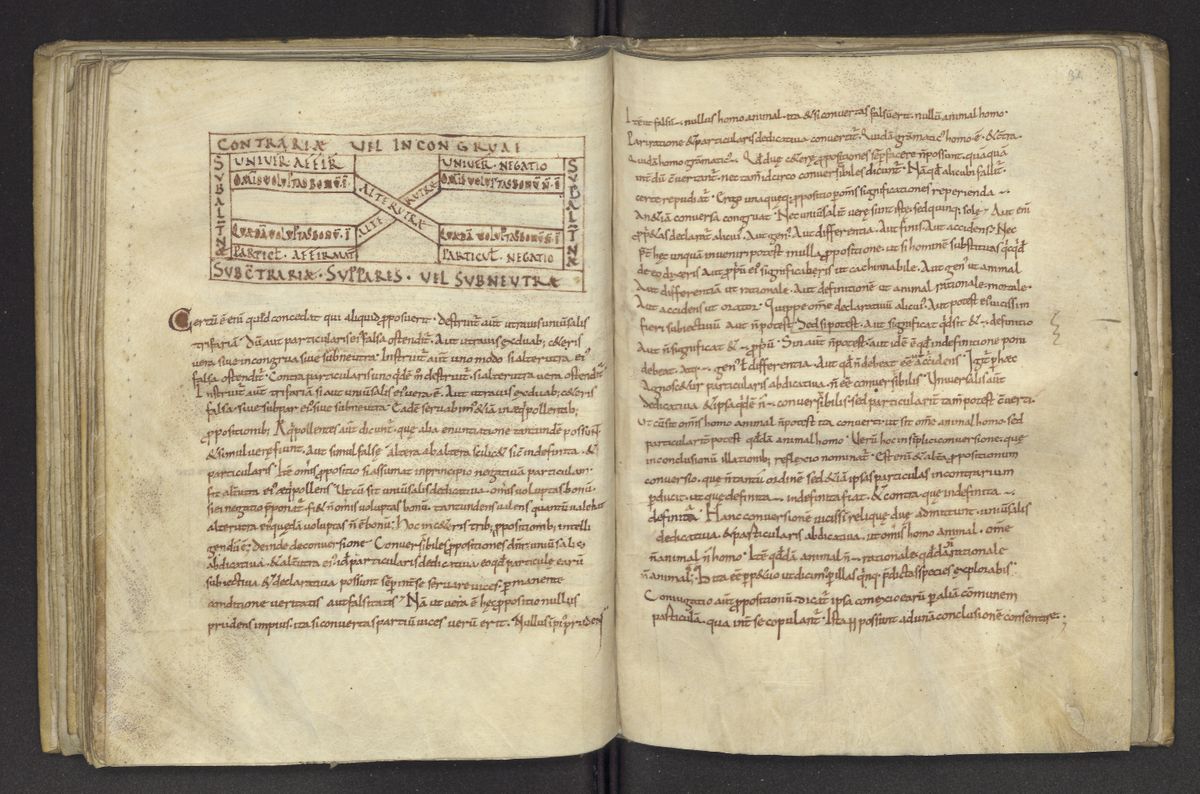 CONTRARIAE VEL INCONGRUAE
UNIVER AFFIR UNIVER NEGATIO
OMIS VOLVPTAS BONVM Ē OMIS VOLVPTAS BONV N̄ Ē
SVBALTNAE ALTERUTRAE ALTERUTRAE SVBALTNAE
QVAEDĀ VOLVPTAS BONV Ē QVAEDĀ VOLVPTAS BONV N̄ Ē
PARTICL AFFIRMAT PARTICUL NEGATIO
SVBCTRARIAE · SVPPARES · VEL SVBNEVTRAE
Certū ē enī quid concedat qui aliquid pposuerit · destruit aut utravis universalis
trifariā · Dū aut particularis ei falsa ostendit · Aut utravis ex duab; ceteris
vera sive incongrua sive subneutra · Instruit aut uno modo si alterutra ei
falsa ostendit · Contra particularis uno qdē m destruit · si alterutra vera ostendit
Instruit aut trifariā si aut universalis ei vera ē · Aut utravis ex duab; ceteris
falsa · sive subpar ei sive subneutra · Eadē servabim & iā in aeqpollentib;
ppositionib; Aeqpollentes aut dicunt · que alia enuntiatione tantundē possunt
& simul vere fiunt · Aut simul false · altera ab altera scilic & sic indefinita · &
particularis · Itē omis ppositio si assumat in principio negativā particulam
fit alterutra ei aeqpollens · Ut cū sit universalis dedicativa · omis voluptas bonū ·
si ei negatio pponat · fi& n omis voluptas bonū · tantundens valens quantū valebat
alterutra ei quedā voluptas n ē bonū · Hoc in ceteris trib; ppositionib; intelli
gendū ē; deinde de conversione · Conversibiles ppositiones dnr universalis
abdicativa · & alterutra ei · id particularis dedicativa · eo qd particule earū
subiectiva & declarativa possunt semp int se servare vices · pmanente
conditione veritatis aut falsitatis · Nā ut vera ē hec ppositio nullus
prudens impius · ita si convertas partiū vices verū erit · Nullus impi prudens
32
Itē ut falsū nullus homo animal · ita & si convertas falsū erit · nullū animal homo ·
Pari ratione & particularis dedicativa convertit · Quidā grāmatic homo ē · & cont̄a
quidā homo grāmatic · Qd due ceterę ppositiones semp facere n possunt · quāquā
int dū convertant · nec tam idcirco conversibiles dicunt · Nā qd alicubi fallit
certe repudiat · Ergo unaqueq; ppositio p omis significationes reperienda
An & iā conversa congruat · Nec universalit vere sunt iste · sed quinq; sole · Aut eni
pprietas declarat alicui · Aut gen · Aut differentia · Aut finis · Aut accidens · Nec
pt hec unquā inveniri potest in ulla ppositione · ut si hominē substituas qcqd
de eo dixeris aut ppriū ei significaberis ut cachinnabile · Aut gen ut animal
Aut differentiā ut rationale · Aut definitionē ut animal rationale mortale ·
Aut accidens ut orator · Quippe ome declarativū alicui · Aut potest ei vicissim
fieri subiectivū aut n potest · Sed si potest · Aut significat qd sit & definitio
Aut n significat & ppriū · Sin aut n potest · aut idē ē qd in definitione poni
debeat · atq gen ł differentia · Aut qd n debeat · eē accidens · Igit p haec
Agnoscetur particularis abdicativa · n eē conversibilis · Universalis aut
dedicativa & ipsa qdē n conversibilis · sed particularit tam potest converti ·
Ut cū sit omis homo animal n potest ita converti · ut sit ome animal homo · sed
particularit potest qddā animal homo · Verū hoc in simplici conversione · que
in conclusionū illationib; reflexio nominat · Est eni & alta ppositionum
conversio · que n tantū ordinē sed & iā ipsas particulas in contrarium
pducit · ut que definita indefinita fiat · & contra que indefinita
definita · Hanc conversionē vicissi relique due admittunt · universalis
dedicativa · & particularis abdicativa · ut omis homo animal · ome
n animal n homo · Itē qddā animal n rationale · qddā n rationale
n animal · Ita eē ppetuo ut dicim p illas qnq; pdictas species explorabis
Coniugatio aut ppositionū · dicit ipsa conexio earū p aliā cōmunem
particulā · qua int se copulant · Ista possunt ad unā conclusionē consentire · ;